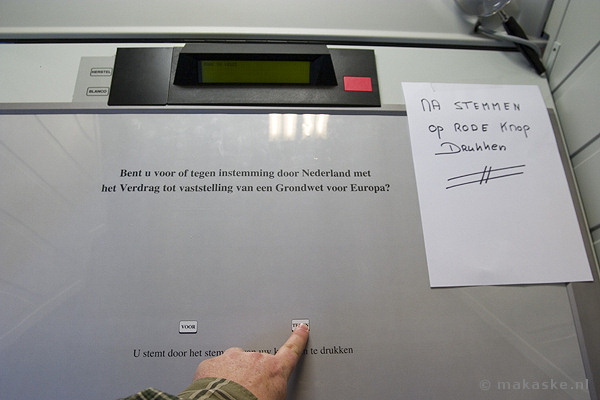 HERSTEL
BLANCO
NA STEMMEN
OP RODE KNOP
DRUKKEN
Bent u voor of tegen instemming door Nederland met
het Verdrag tot vaststelling van een Grondwet voor Europa?
VOOR
U stemt door het te drukken
© makaske.nl